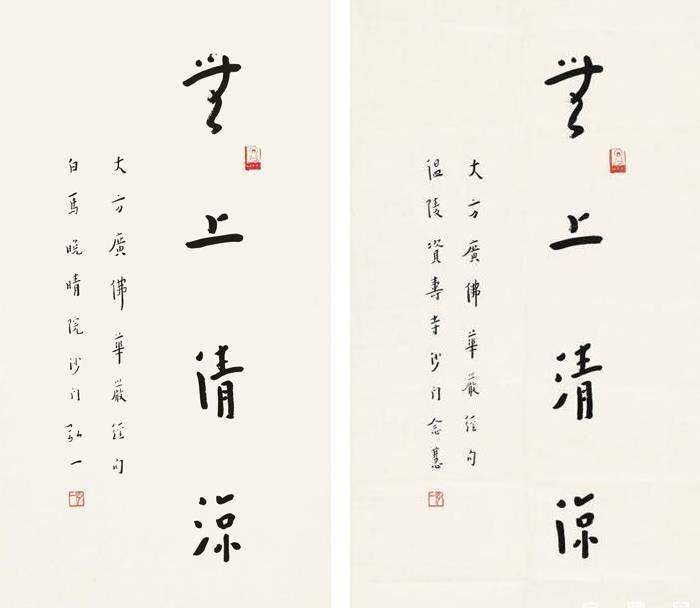 無上清涼
大方廣佛華嚴經句
白馬晚晴院沙門弘一
無上清涼
大方廣佛華嚴經句
温陵資壽寺沙門念慧